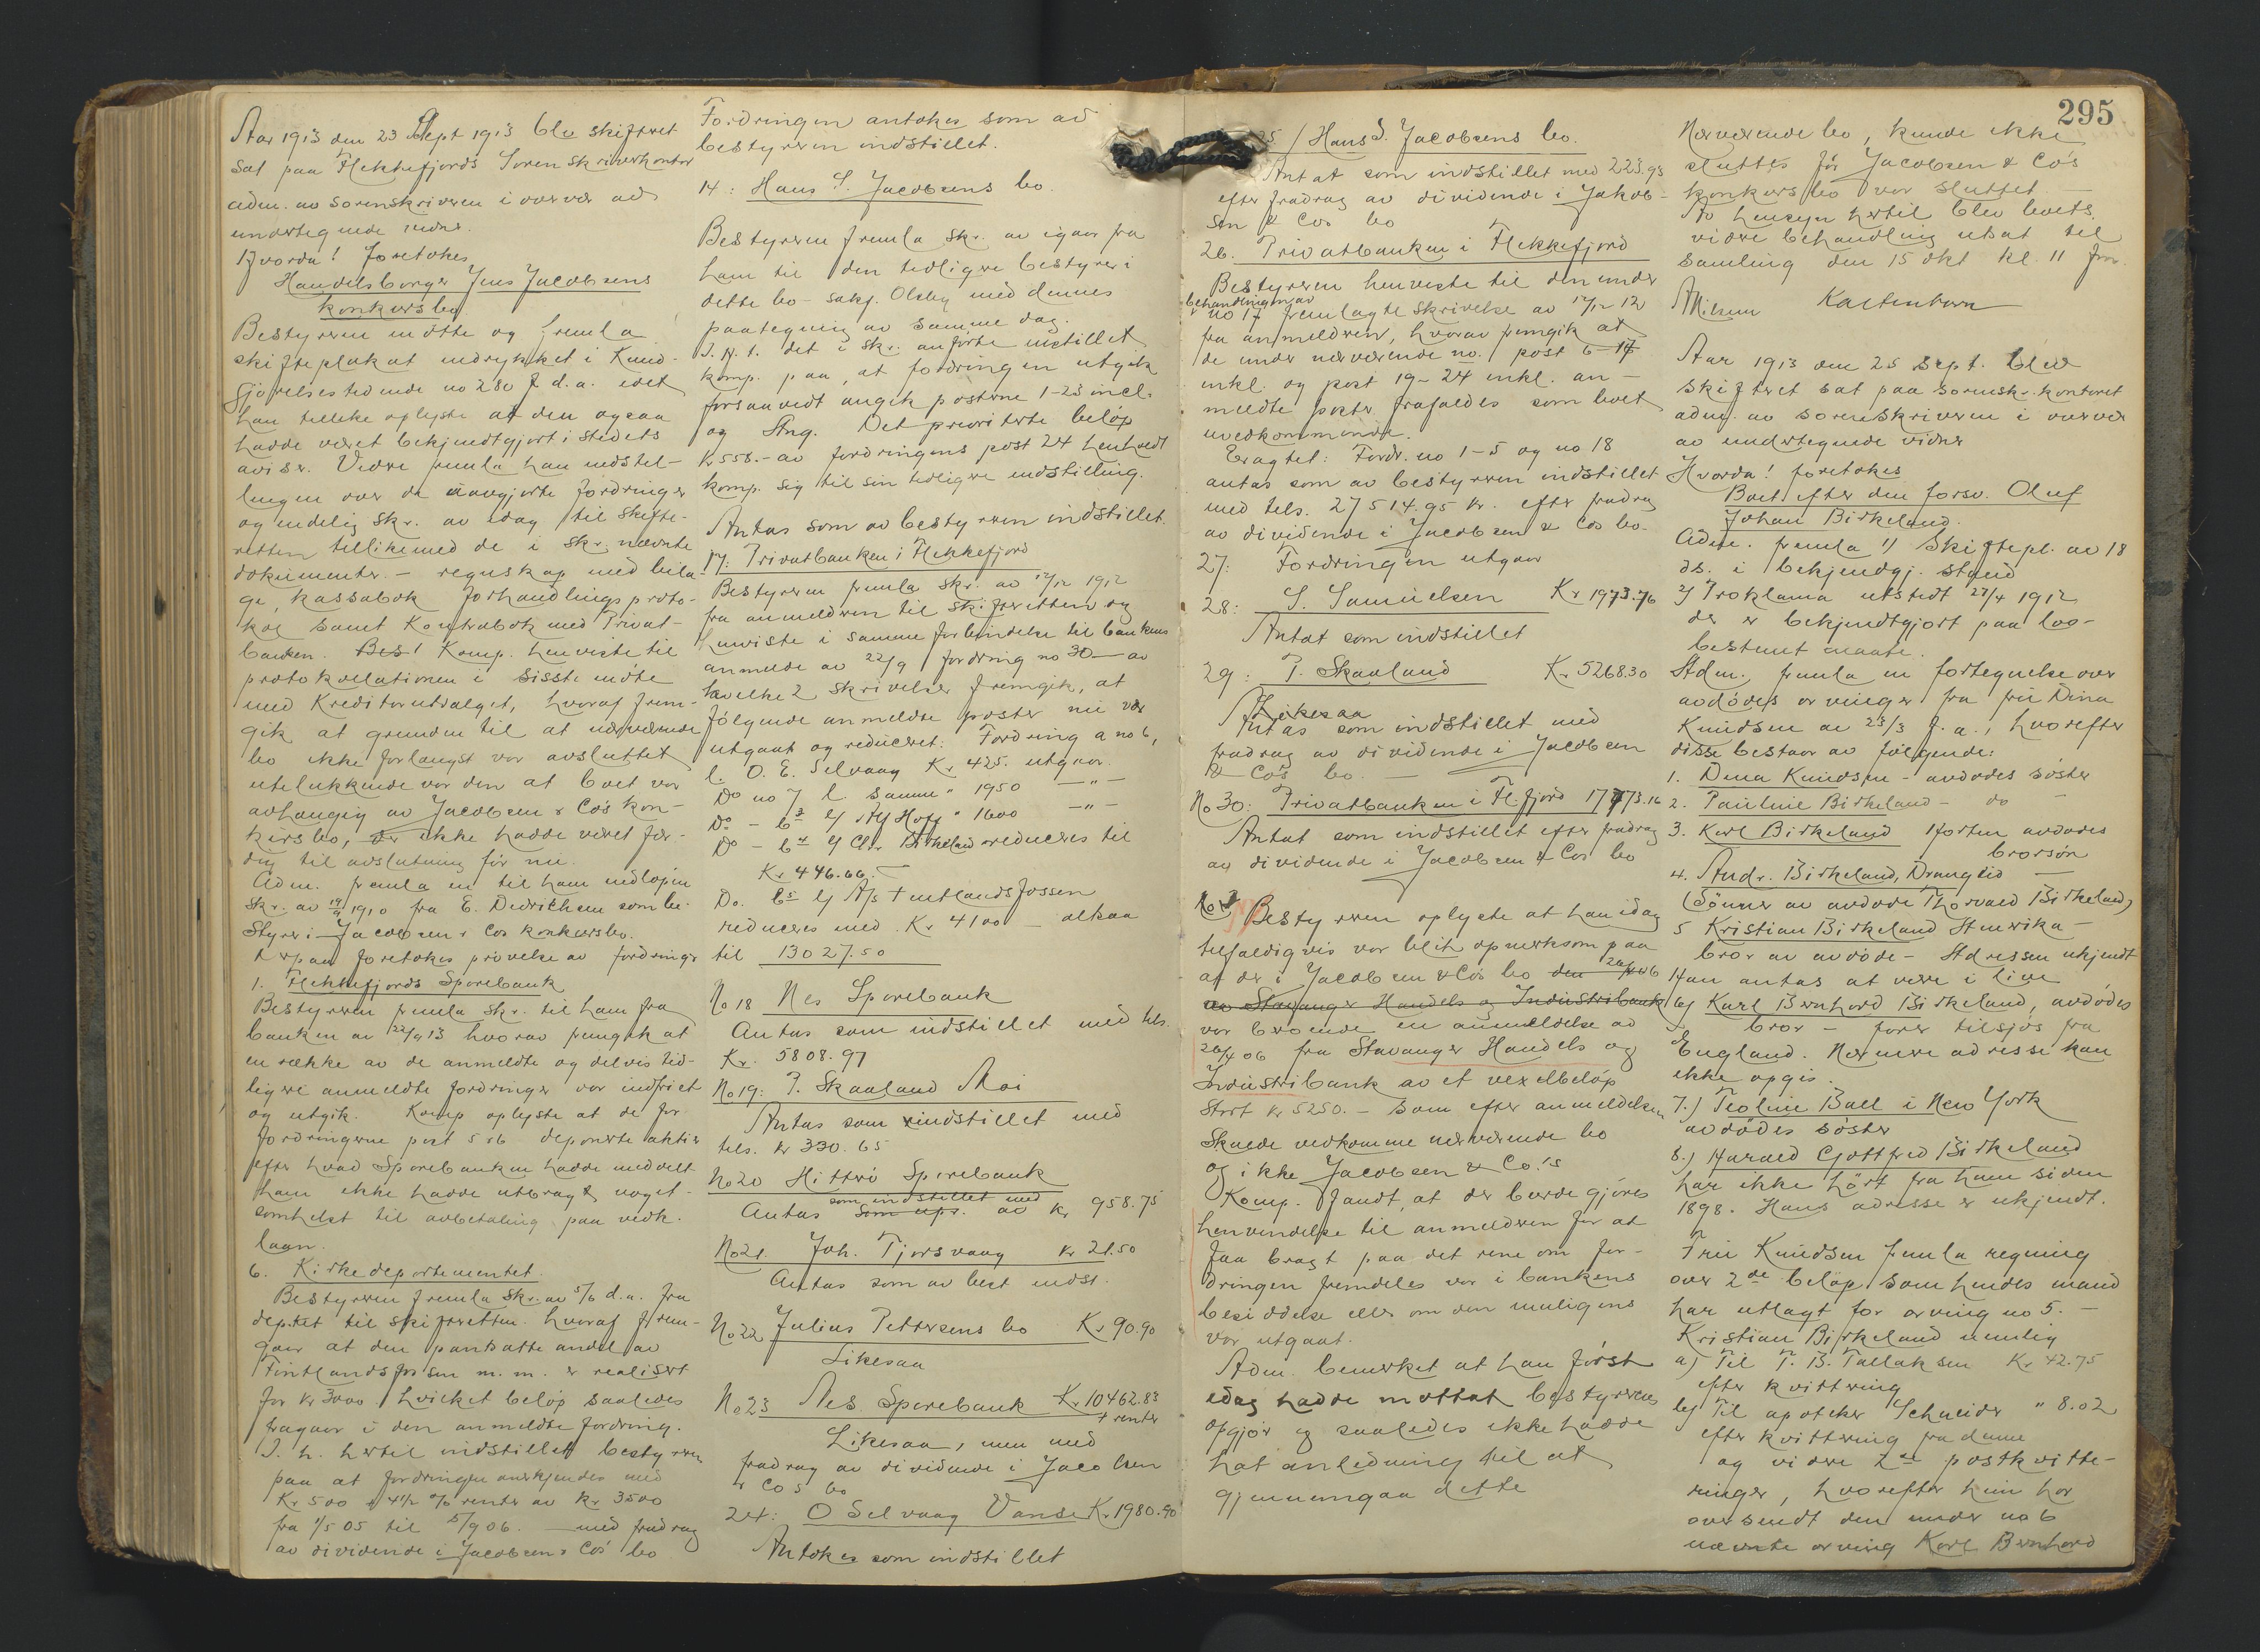 Aar 1913 den 23 Sept 1913 blev skiftet
sat paa Flekkefjords Sorenskriverkontor
adm. av sorenskriveren i overvær av
undertegnede vidner.
Hvorda! Foretokes
Handelsborger Jens Jacobsens
konkursbo
Bestyreren møtte og fremla
skifteplakat indrykket i Kund-
gjørelsestidende no 280 f. d. a. idet
han tillike oplyste at den ogsaa
hadde været bekjendtgjort i stedets
aviser. Videre fremla han indstil-
lingen over de uavgjorte fordringer
og endelig skr. av idag til skifte-
retten tillikemed de i skr. nævnte
dokumenter. - regnskap med bila-
ge, kassabok forhandlingsproto-
kol samt Kontrabok med Privat-
banken. Best Komp. henviste til
protokollationen i sidste møte
med Kreditorutvalget, hvoraf frem-
gik at grunden til at nærværende
bo ikke forlængst var avsluttet
utelukkende var den at boet var
avhængig av Jacobsen & Co's kon-
kursbo, der ikke hadde været fær-
dig til avslutning før nu.
Adm. fremla en til ham indløpen
skr. av 19/9 1910 fra E. Diedrichsen som be-
styrer i Jacobsen & Cos konkursbo.
Derpaa foretokes prøvelse av fordringer
1. Flekkefjords Sparebank
Bestyreren fremla skr. til ham fra
banken av 22/9 13 hvorav fremgik at
en række av de anmeldte og delvis tid-
ligere anmeldte fordringer var indfriet
og utgik. Komp oplyste at de for
fordringerne post 5 & 6 deponerte aktier
efter hvad Sparebanken hadde meddelt
ham ikke hadde utbragt noget-
somhelst til avbetaling paa vedk.
laan.
6. Kirkedepartementet.
Bestyreren fremla skr. av 5/6 d.a. fra
dep.tet til skifteretten hvoraf frem-
gaar at den pantsatte andel av
Fintlandsfossen m. m. er realisert
for kr 3000 hvilket beløp saaledes
fragaar i den anmeldte fordring.
I. h. hertil indstillet bestyreren
paa at fordringen anerkjendes med
Kr 500 + 4½ % renter av kr. 3500
fra 1/5 05 til 5/9 06. - med fradrag
av dividende i Jacobsen & Co's bo
Fordringen antokes som av
bestyreren indstillet.
14: Hans S. Jacobsens bo.
Bestyreren fremla skr. av igaar fra
ham til den tidligere bestyrer i
dette bo - sakf. Olsby med dennes
paategning av samme dag.
I. h. t. det i skr. anførte indstillet
komp. paa, at fordringen utgik
forsaavidt angik posterne 1-23 incl.
og Ang. Det prioriterte beløp
Kr 558.- av fordringens post 24 henholdt
komp. sig til sin tidligere indstilling.
Antas som av bestyreren indstillet.
17: Privatbanken i Flekkefjord
Bestyreren fremla skr. av 17/12 1912
fra anmelderen til skifteretten og
henviste i samme forbindelse til bankens
anmelde av 22/9 fordring no 30 - av
hvilke 2 skrivelser fremgik, at
følgende anmeldte poster nu var
utgaat og reduceret: Fordring a no 6,
l. O. E. Selvaag Kr 425. utgaar.
Do no 7 l. samme " 1950 -"-
Do - b3 l/ Alf Hoff " 1600 -"-
Do - b4 l/ Chr Birkeland reduceres til
Kr 446.66.-
Do. b5 l/ A/s Fintlandsfossen
reduceres med Kr 4100 - altsaa
til 13027.50
No 18 Nes Sparebank
Antas som indstillet med tils.
Kr. 5808.97
No 19: P. Skaaland Moi
Antas som indstillet med
tils. kr 330.65
No 20 Hitterø Sparebank
som indstillet med
Antas som opr. av kr 958.75
No 21. Joh. Tjørsvaag kr 21.50
Antas som av best indst.
No 22 Julius Pettersens bo Kr 90.90
Likesaa
No 23 Nes Sparebank Kr 10462.83
+ renter
Likesaa, men med
fradrag av dividende i Jacobsen
& Co's bo
24: O Selvaag Vanse Kr 1980.90
Antokes som indstillet
25/ Hans S. Jacobsens bo.
Antat som indstillet med 223.93
efter fradrag av dividende i Jakob-
sen & Cos bo
26. Privatbanken i Flekkefjord
Bestyreren henviste til den under
behandlingen av
no 17 fremlagte skrivelse av 17/12 12
fra anmelderen, hvorav fremgik at
de under nærværende no. post 6-17
inkl. og post 19-24 inkl. an-
meldte poster frafaldes som boet
uvedkommende.
Eragtet: Fordr. no 1-5 og no 18
antas som av bestyreren indstillet
med tils. 27514.95 kr. efter fradrag
av dividende i Jacobsen & Cos bo.
27: Fordringen utgaar
28: S. Samuelsen Kr 1973.76
Antat som indstillet
29: P. Skaaland Kr 5268.30
Likesaa
Antas som indstillet med
fradrag av dividende i Jacobsen
& Co's bo. -
No 30: Privatbanken i Fl.fjord 17773.16
Antat som indstillet efter fradrag
av dividende i Jacobsen & Cos bo
Bestyreren oplyste at han idag
tilfældigvis var blit opmerksom paa
at der i Jacobsen & Co's bo den 26/4 06
av Stavanger Handels og Industribank
var beroende en anmeldelse av
26/4 06 fra Stavanger Handels og
Industribank av et vexelbeløp
stort kr 5250.- som efter anmeldelsen
skulde vedkomme nærværende bo
og ikke Jacobsen & Co.'s
Komp. fandt, at der burde gjøres
henvendelse til anmelderen for at
faa bragt paa det rene om for-
dringen fremdeles var i bankens
besiddelse eller om den muligens
var utgaat.
Adm. bemerket at han først
idag hadde mottat bestyrerens
opgjør og saaledes ikke hadde
hat anledning til at
gjennemgaa dette
295
Nærværende bo, kunde ikke
sluttes før Jacobsen & Co's
konkursbo var sluttet. -
Av hensyn hertil blev boets
videre behandling utsat til
samling den 15 okt kl. 11 form.
Kaltenborn
Aar 1913 den 25 Sept. blev
skiftet sat paa sorenskr.kontoret
adm. av sorenskriveren i overvær
av undertegnede vidner
Hvorda! foretokes
Boet efter den forsv. Oluf
Johan Birkeland.
Adm. fremla 1) Skiftepl. av 18
ds. i bekjendtgj. stand
2) Proklama utstedt 27/4 1912
der er bekjendtgjort paa lov-
bestemt maate.
Adm. fremla en fortegnelse over
avdødes arvinger fra fru Dina
Knudsen av 23/3 f.a., hvorefter
disse bestaar av følgende:
1. Dina Knudsen - avdødes søster
2. Pauline Birkeland - do -
3. Karl Birkeland Horten avdødes
brorsøn
4. Andr. Birkeland, Drangeid -
(Sønner av avdøde Thorvald Birkeland)
5 Kristian Birkeland Amerika -
bror av avdøde - Adressen ukjendt
Han antas at være i live
6) Karl Bernhard Birkeland, avdødes
bror - farer tilsjøs fra
England. Nærmere adresse kan
ikke opgis.
7.) Teoline Ball i New York
avdødes søster
8.) Harald Gottfred Birkeland
har ikke hørt fra ham siden
1898. Hans adresse er ukjendt.
Fru Knudsen fremla regning
over 2de beløp som hendes mand
har utlagt for arving no 5. -
Kristian Birkeland nemlig
a) Til T. B. Tallaksen Kr 42.75
efter kvittering
b) Til apoteker Schneider " 8.02
efter kvittering fra denne
og videre 2de postkvitte-
ringer, hvorefter hun har
oversendt den under no 6
nævnte arving Karl Bernhard